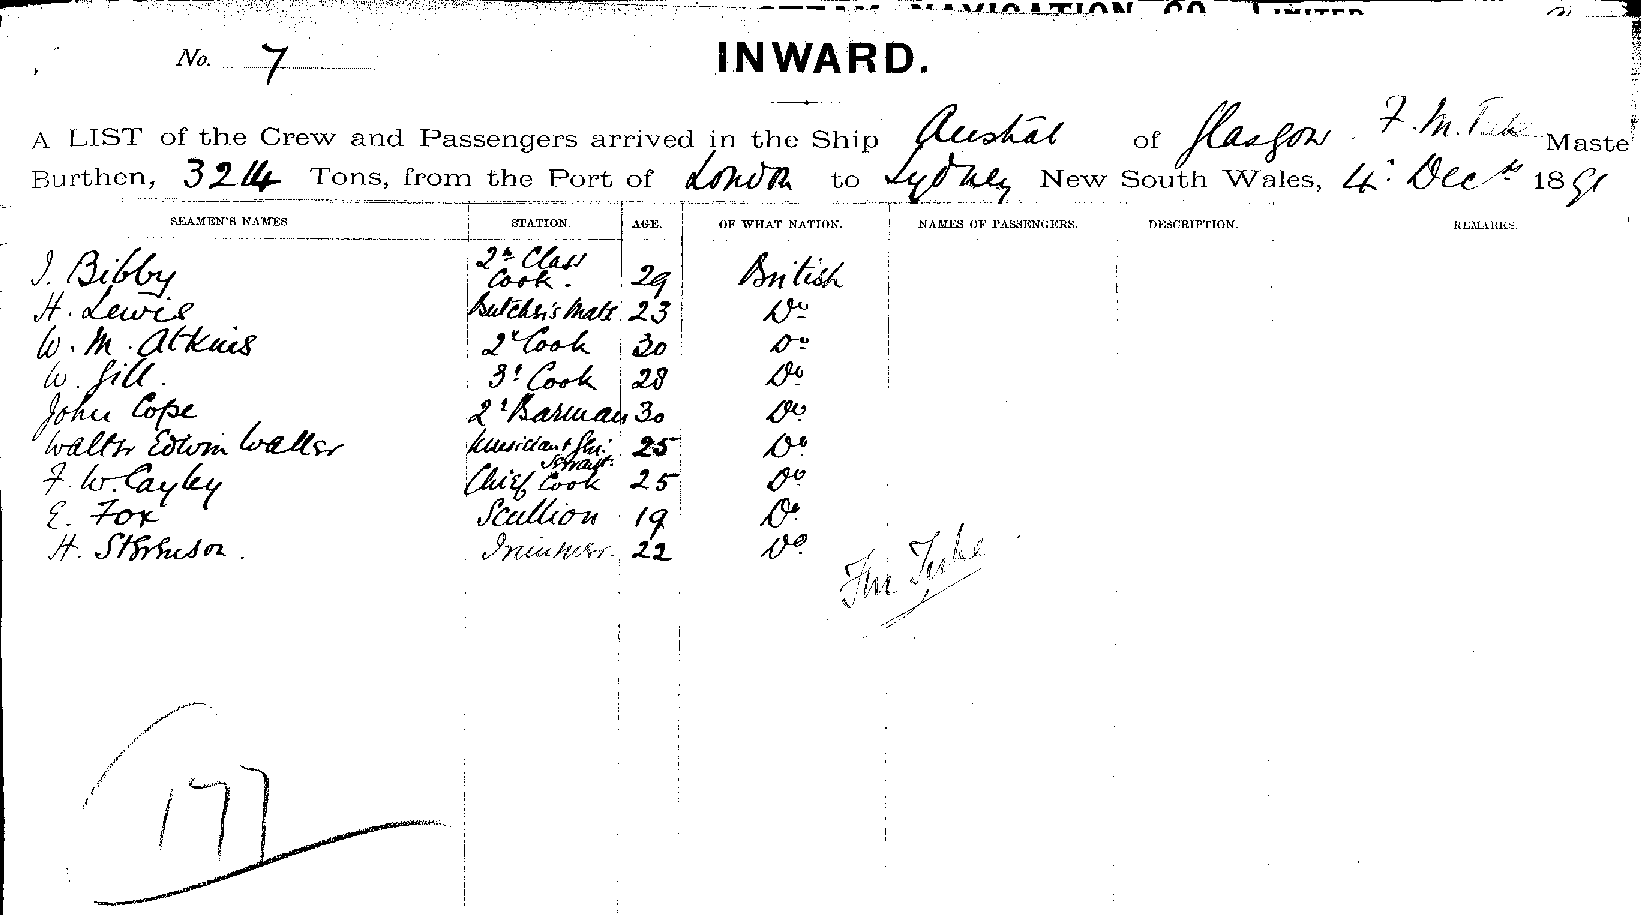 STEAM NAVIGATION CO. LIMITED
No. 7
INWARD.
A LIST of the Crew and Passengers arrived in the Ship Austral of Glasgow. F. M. Maste
Burthen, 3214 Tons, from the Port of London to Sydney New South Wales, 4th Decr 1891
SEAMEN'S NAMES STATION. AGE. OF WHAT NATION. NAMES OF PASSENGERS. DESCRIPTION. REMARKS.
J. Bibby 2nd Class Cook. 29 British
H. Lewis Butcher's Mate 23 Do
W. M. Atkins 2d Cook 30 Do
W. Gill. 3d Cook 28 Do
John Cope 2d Barman 30 Do
Walter Edwin Waller Musician & Servant. 25 Do
F. W. Cayley Chief Cook 25 Do
E. Fox Scullion 19 Do
H. Stevenson. Trimmer. 22 Do
177